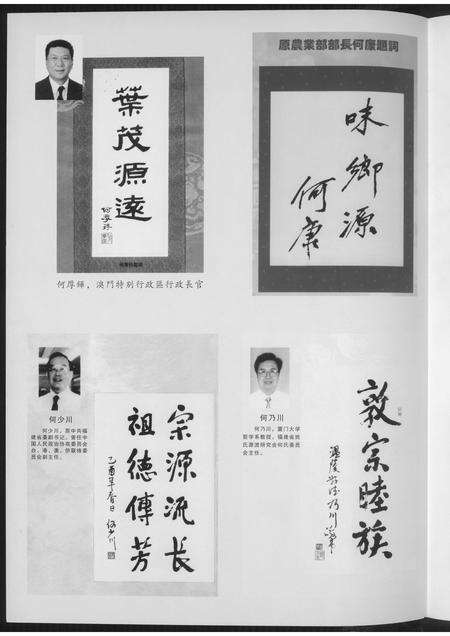 葉茂源遠
何厚鏵
何厚鏵,澳門特別行政區行政長官
原農業部部長何康題詞
味鄉源
何康
何少川
何少川,原中共福
建省委副书记,曾任中
国人民政治协商委员会
台、港、澳、侨联络委
员会副主任。
宗源流长
祖德傳芳
乙酉年春日
何少川
何乃川
何乃川,厦门大学
哲学系教授,福建省姓
氏源流研究会何氏委员
会主任。
敦宗睦族